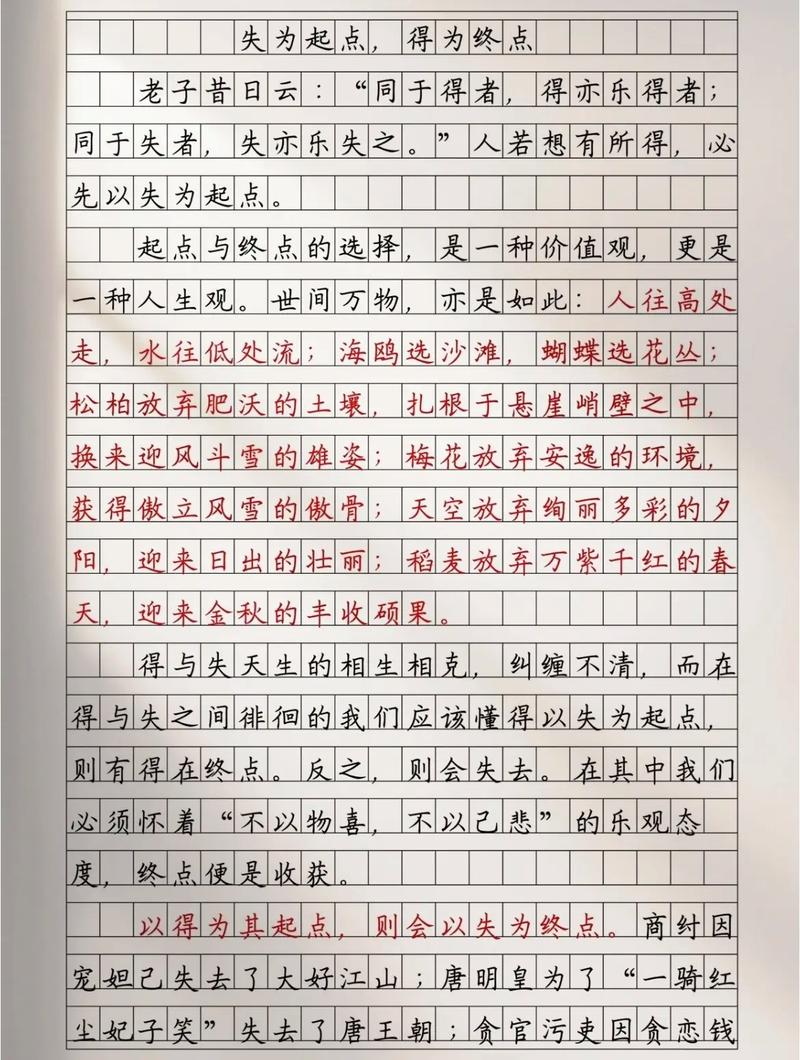 失为起点，得为终点
老子昔日云：“同于得者，得亦乐得者；
同于失者，失亦乐失之。”人若想有所得，必
先以失为起点。
起点与终点的选择，是一种价值观，更是
一种人生观。世间万物，亦是如此：人往高处
走，水往低处流；海鸥选沙滩，蝴蝶选花丛；
松柏放弃肥沃的土壤，扎根于悬崖峭壁之中，
换来迎风斗雪的雄姿；梅花放弃安逸的环境，
获得傲立风雪的傲骨；天空放弃绚丽多彩的夕
阳，迎来日出的壮丽；稻麦放弃万紫千红的春
天，迎来金秋的丰收硕果。
得与失天生的相生相克，纠缠不清，而在
得与失之间徘徊的我们应该懂得以失为起点，
则有得在终点。反之，则会失去。在其中我们
必须怀着“不以物喜，不以己悲”的乐观态
度，终点便是收获。
以得为其起点，则会以失为终点。商纣因
宠妲己失去了大好江山；唐明皇为了“一骑红
尘妃子笑”失去了唐王朝；贪官污吏因贪恋钱